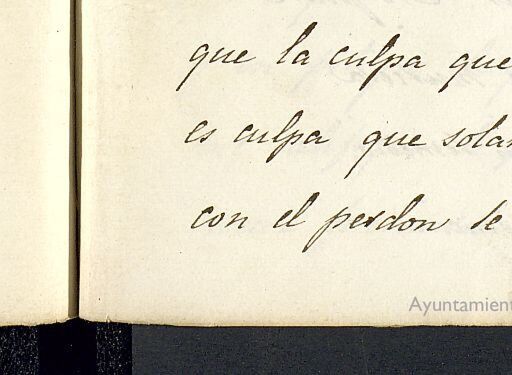 que la culpa que
es culpa que solam
con el perdon se
Ayuntamient